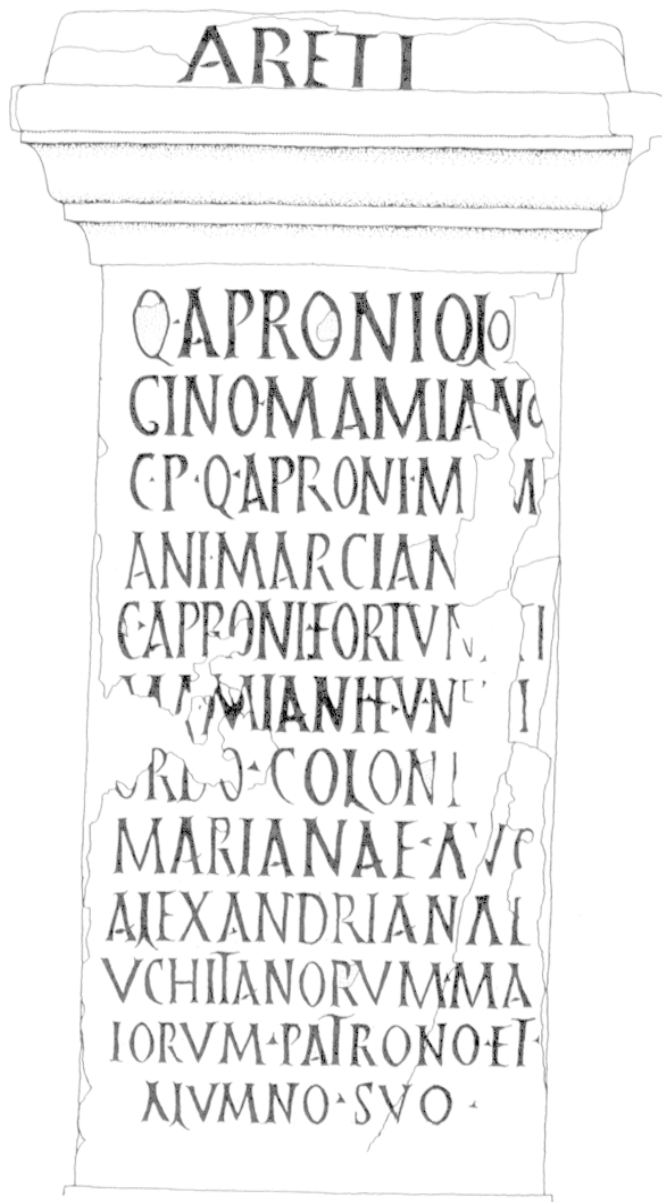 ARETI
Q·APRONIO LO
GINO·MAMIANO
C·P·Q·APRONI·M
ANI·MARCIAN
C·APRONI·FORTVN I
MIANI·F·V·N I
ORDO·COLONI
MARIANAE·AVG
ALEXANDRIANAE
VCHITANORVM·MA
IORVM·PATRONO·ET·
ALVMNO·SVO·